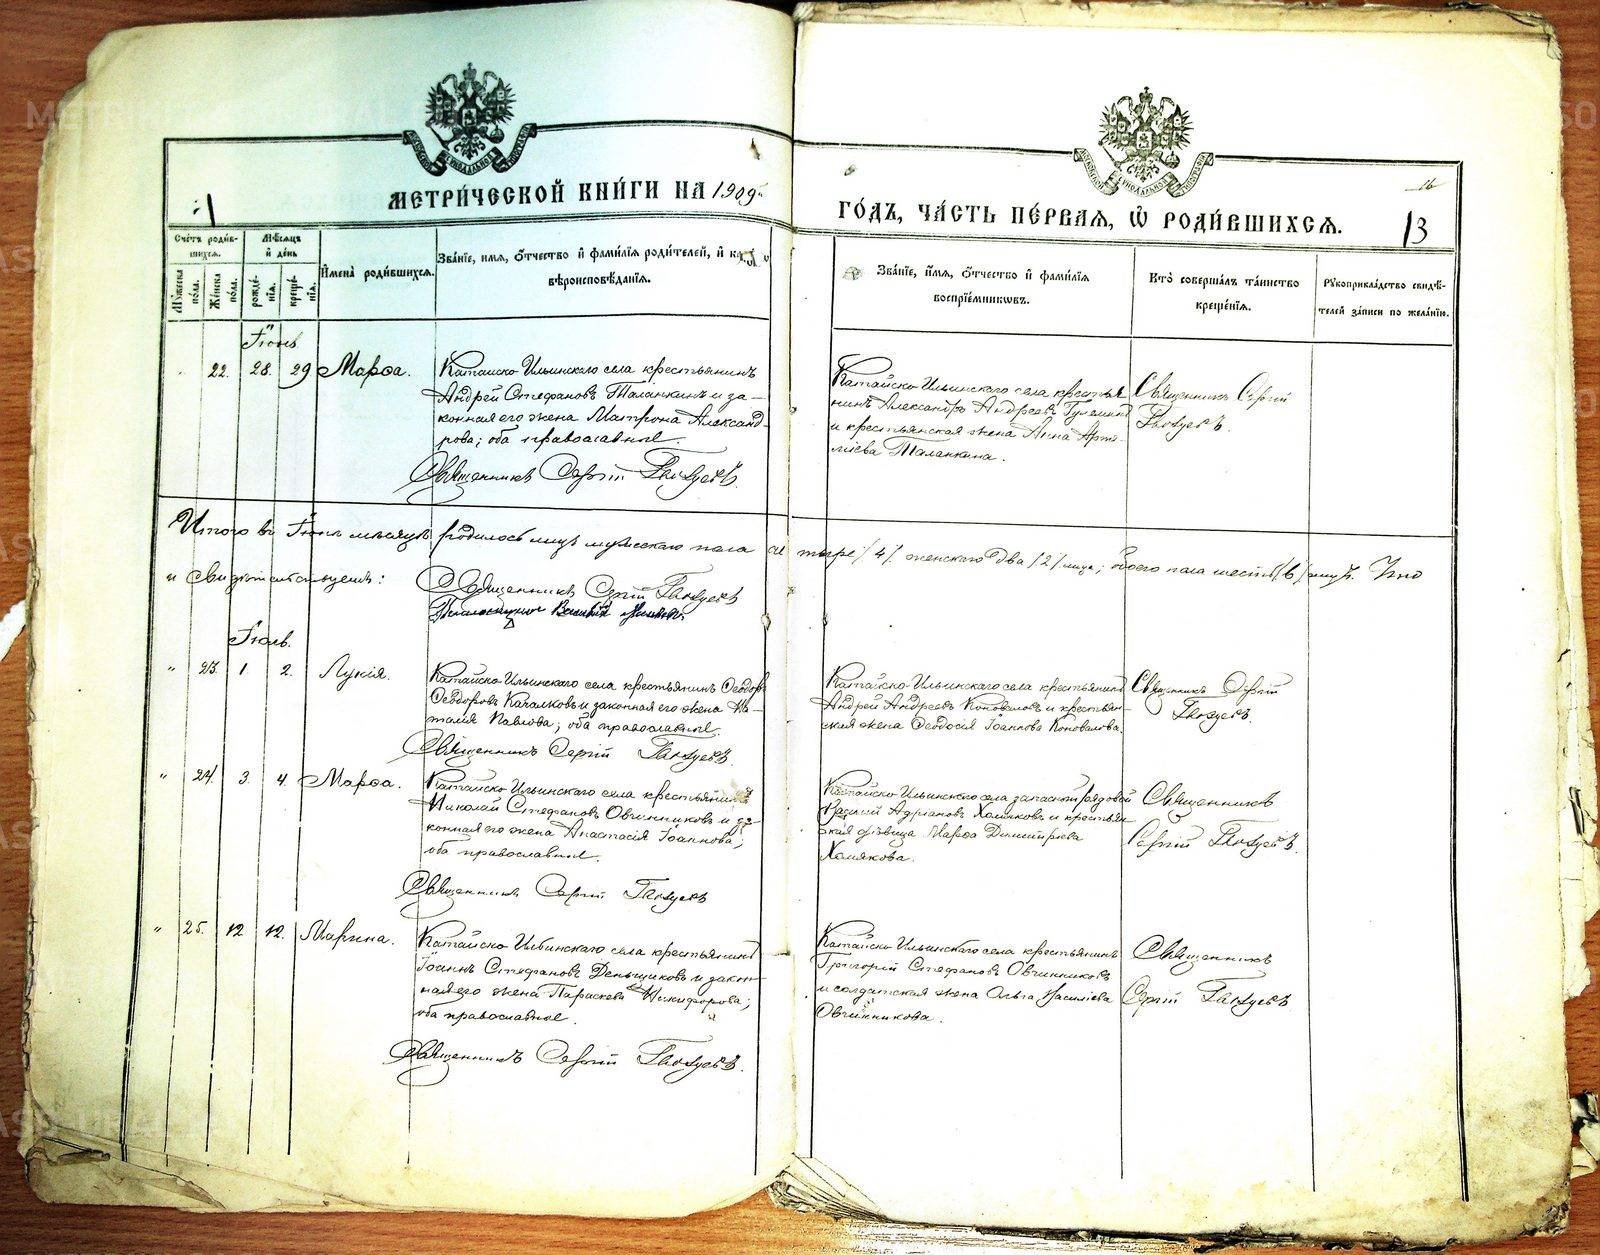 МЕТРИ́ЧЕСКОЙ КНИ́ГИ НА 1909 г.
ГО́ДЪ, ЧА́СТЬ ПЕ́РВАЯ, Ѡ РОДИ́ВШИХСЯ.
13
Сче́тъ роди́в-
шихся.
Му́жеска по́ла.
Же́нска по́ла.
Мѣ́сяцъ
и҆ де́нь
рожде́нїя.
креще́нїя.
И҆мена̀ роди́вшихся.
Зва́нїе, и҆мя, ѻ҆́тчество и҆ фами́лїя роди́телей, и҆
вѣроисповѣ́данїя.
Зва́нїе, и҆́мя, ѻ҆́тчество и҆ фами́лїя
воспрїе́мникѡвъ.
Кто̀ соверша́лъ та́инство
креще́нїя.
Рꙋкоприкла́дство свидѣ́-
телей за́писи по жела́нїю.
Іюнь
22. 28. 29 Марѳа.
Катайско-Ильинскаго села крестьянинъ
Андрей Стефановъ Таланкинъ и за-
конная его жена Матрона Александ-
рова; оба православные.
Священникъ Сергій
Катайско-Ильинскаго села крестья
нинъ Александръ Андреевъ
и крестьянская жена Анна Арте-
міева Таланкина.
Священникъ Сергій
Итого въ Іюнѣ мѣсяцѣ родилось лицъ мужескаго пола четыре /4/ женскаго два /2/ лица; обоего пола шесть /6/ лицъ. Что
и свидѣтельствуемъ:
Священникъ Сергій
Псаломщикъ Василій
Іюль.
" 23. 1 2. Лукія.
Катайско-Ильинскаго села крестьянинъ Ѳеодоръ
Ѳеодоровъ Качалковъ и законная его жена На-
талія Павлова; оба православные.
Священникъ Сергій
Катайско-Ильинскаго села крестьянинъ
Андрей Андреевъ Коноваловъ и крестьян-
ская жена Ѳеодосія Іоаннова Коновалова.
Священникъ Сергій
" 24. 3. 4. Марѳа.
Катайско-Ильинскаго села крестьянинъ
Николай Стефановъ Овчинниковъ и за-
конная его жена Анастасія Іоаннова;
оба православные.
Священникъ Сергій
Катайско-Ильинскаго села запасный рядовой
Василій Адріановъ Хомяковъ и крестьян
ская дѣвица Марѳа Димитріева
Хомякова.
Священникъ
Сергій
" 25. 12 12. Марина.
Катайско-Ильинскаго села крестьянинъ
Іоаннъ Стефановъ Деньщиковъ и закон-
ная его жена Параскева Никифорова;
оба православные.
Священникъ Сергій
Катайско-Ильинскаго села крестьянинъ
Григорій Стефановъ Овчинниковъ
и солдатская жена Ольга Василіева
Овчинникова.
Священникъ
Сергій